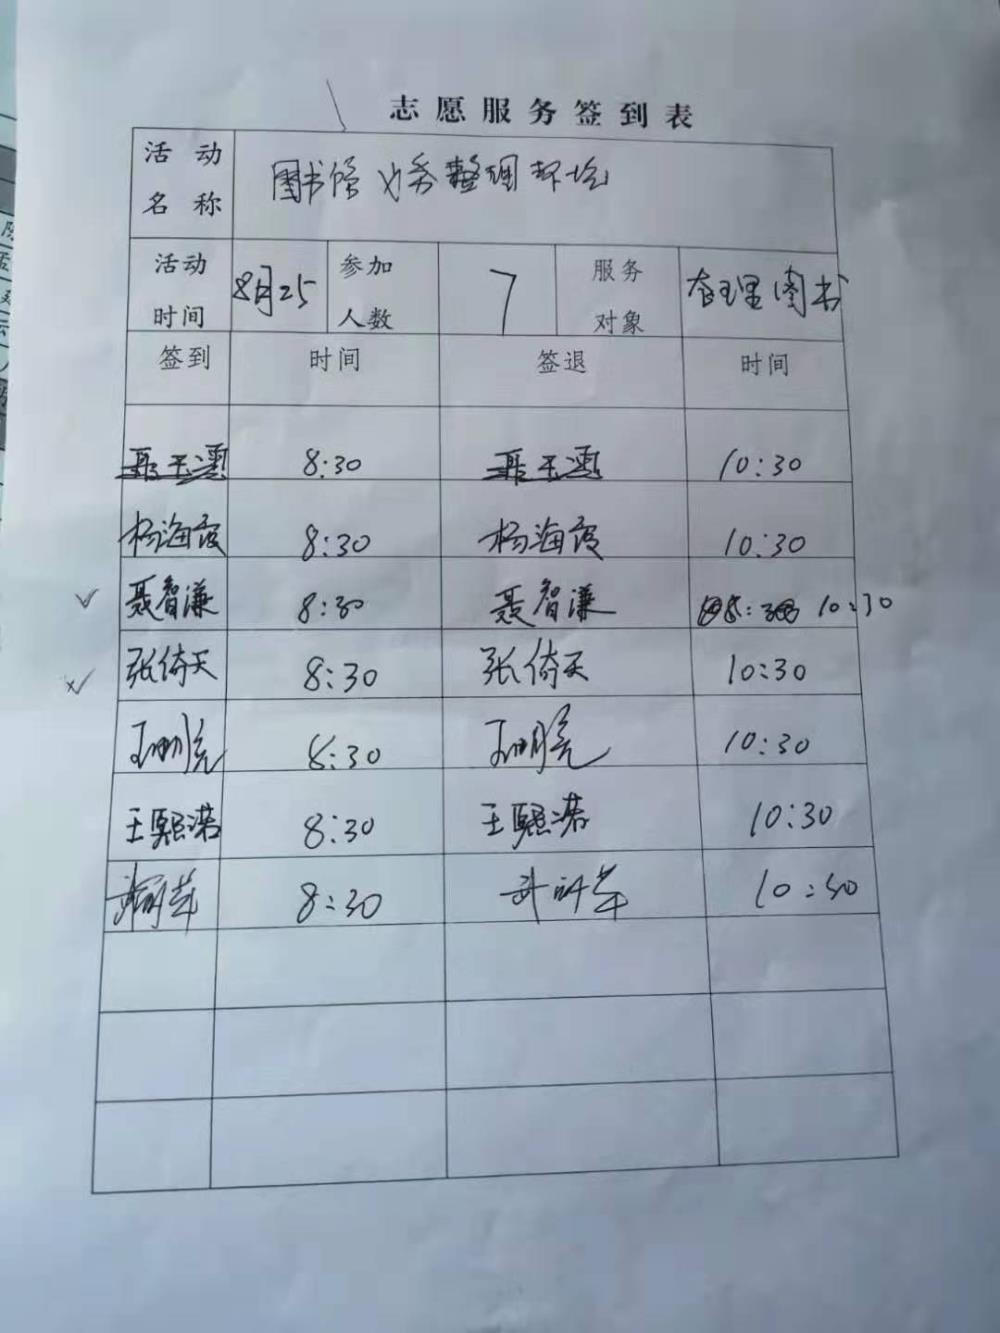 志愿服务签到表
活动名称 图书馆义务整理
活动时间 8月25 参加人数 7 服务对象 整理图书
签到 时间 签退 时间
聂玉 8:30 聂玉 10:30
杨海霞 8:30 杨海霞 10:30
聂智谦 8:30 聂智谦 10:30
张倚天 8:30 张倚天 10:30
8:30 10:30
王熙诺 8:30 王熙诺 10:30
8:30 10:30